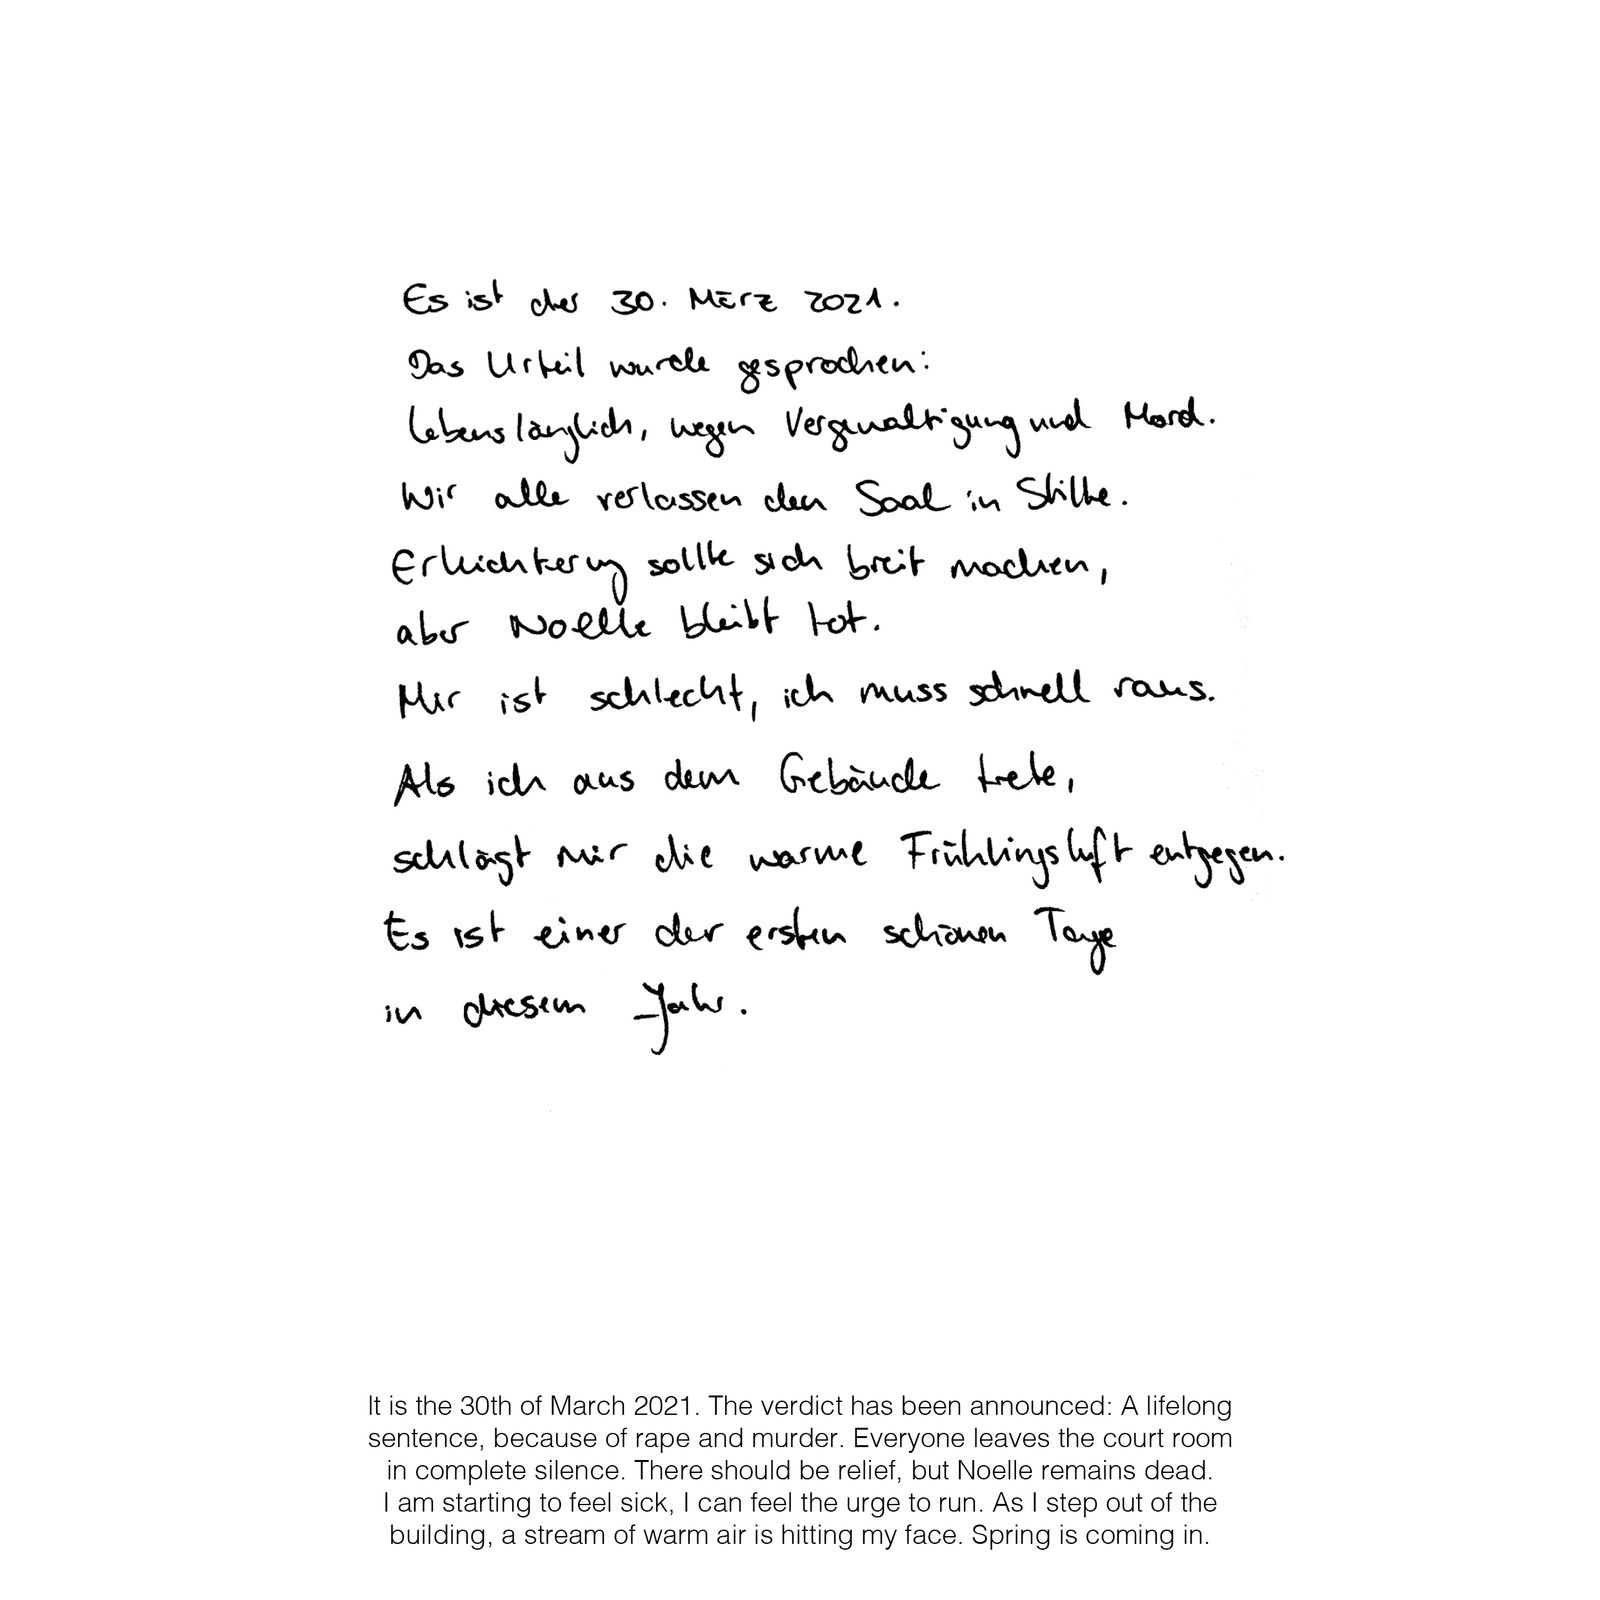 Es ist der 30. März 2021.
Das Urteil wurde gesprochen:
lebenslänglich, wegen Vergewaltigung und Mord.
Wir alle verlassen den Saal in Stille.
Erleichterung sollte sich breit machen,
aber Noelle bleibt tot.
Mir ist schlecht, ich muss schnell raus.
Als ich aus dem Gebäude trete,
schlägt mir die warme Frühlingsluft entgegen.
Es ist einer der ersten schönen Tage
in diesem Jahr.
It is the 30th of March 2021. The verdict has been announced: A lifelong
sentence, because of rape and murder. Everyone leaves the court room
in complete silence. There should be relief, but Noelle remains dead.
I am starting to feel sick, I can feel the urge to run. As I step out of the
building, a stream of warm air is hitting my face. Spring is coming in.